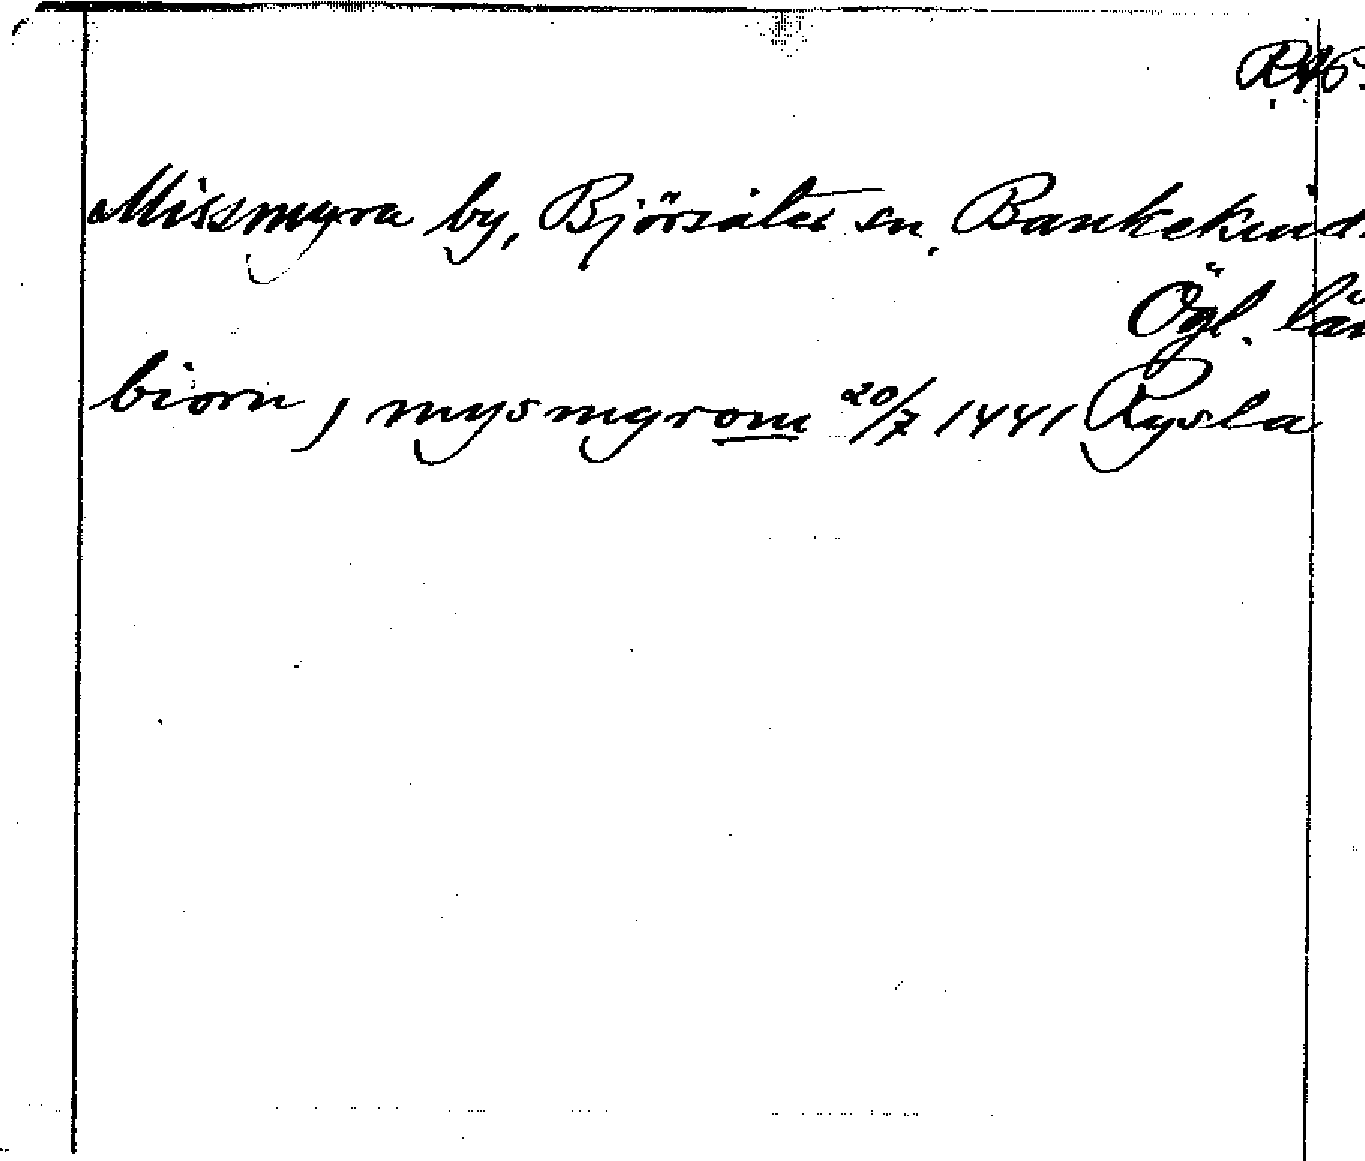 Missmyra by, Björsäters sn. Bankekind.
Ögl. län
biorn j mysmyrom 20/7 1441 Rysla